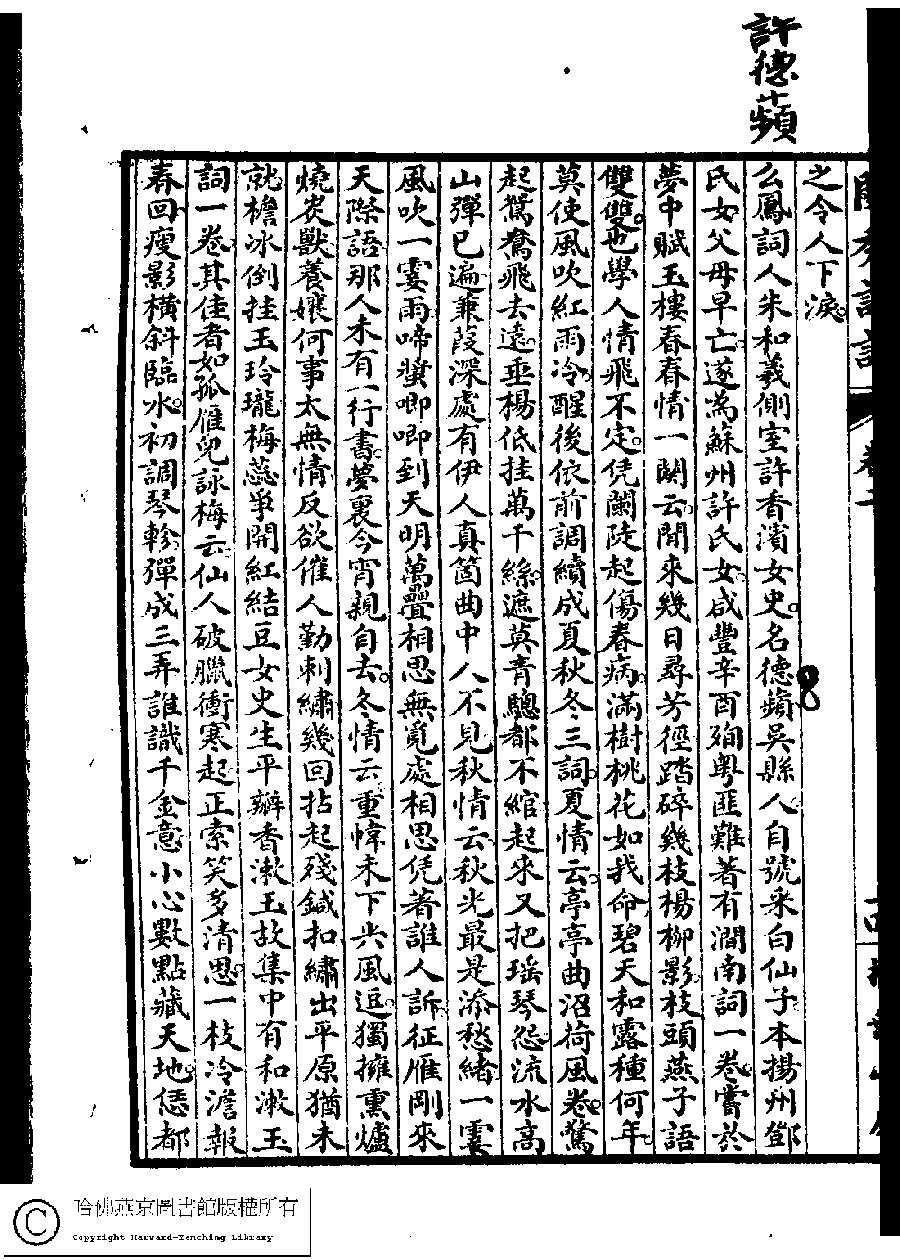 許德蘋
之令人下淚
么鳳詞人朱和羲側室許香濱女史名德蘋吳縣人自號采白仙子本揚州鄧
氏女父母早亡遂為蘇州許氏女咸豐辛酉殉粵匪難著有澗南詞一卷嘗於
夢中賦玉樓春春情一闋云閒來幾日尋芳徑踏碎幾枝楊柳影枝頭燕子語
雙雙也學人情飛不定凭闌陡起傷春病滿樹桃花如我命碧天和露種何年
莫使風吹紅雨冷醒後依前調續成夏秋冬三詞夏情云亭亭曲沼荷風卷驚
起鴛鴦飛去遠垂楊低挂萬千絲遮莫青驄都不綰起來又把瑤琴怨流水高
山彈已遍蒹葭深處有伊人真箇曲中人不見秋情云秋光最是添愁緒一霎
風吹一霎雨啼螿唧唧到天明萬疊相思無覓處相思凭著誰人訴征雁剛來
天際語那人未有一行書夢裏今宵親自去冬情云重幃未下尖風逗獨擁熏爐
燒炭獸養孃何事太無情反欲催人勤刺繡幾回拈起殘鍼扣繡出平原猶未
就檐冰倒挂玉玲瓏梅蕊爭開紅結豆女史生平瓣香漱玉故集中有和漱玉
詞一卷其佳者如孤雁兒詠梅云仙人破臘衝寒起正索笑多清思一枝冷澹報
春回瘦影橫斜臨水初調琴軫彈成三弄誰識千金意小心數點藏天地恁都
哈佛燕京圖書館版權所有
Copyright Harvard-Yenching Library